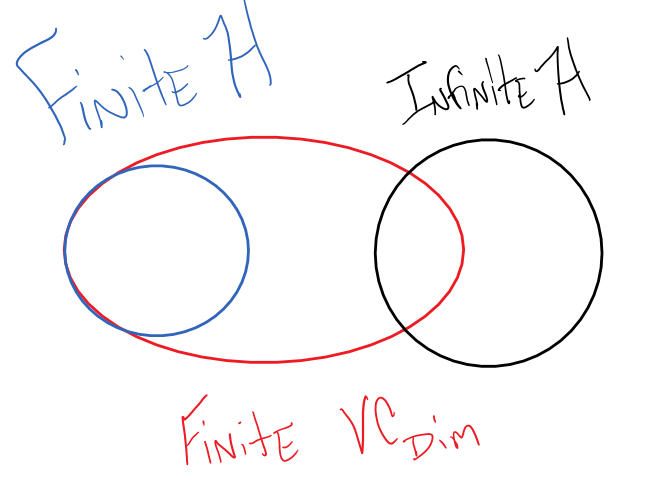 Finite H
Infinite H
Finite VCDim